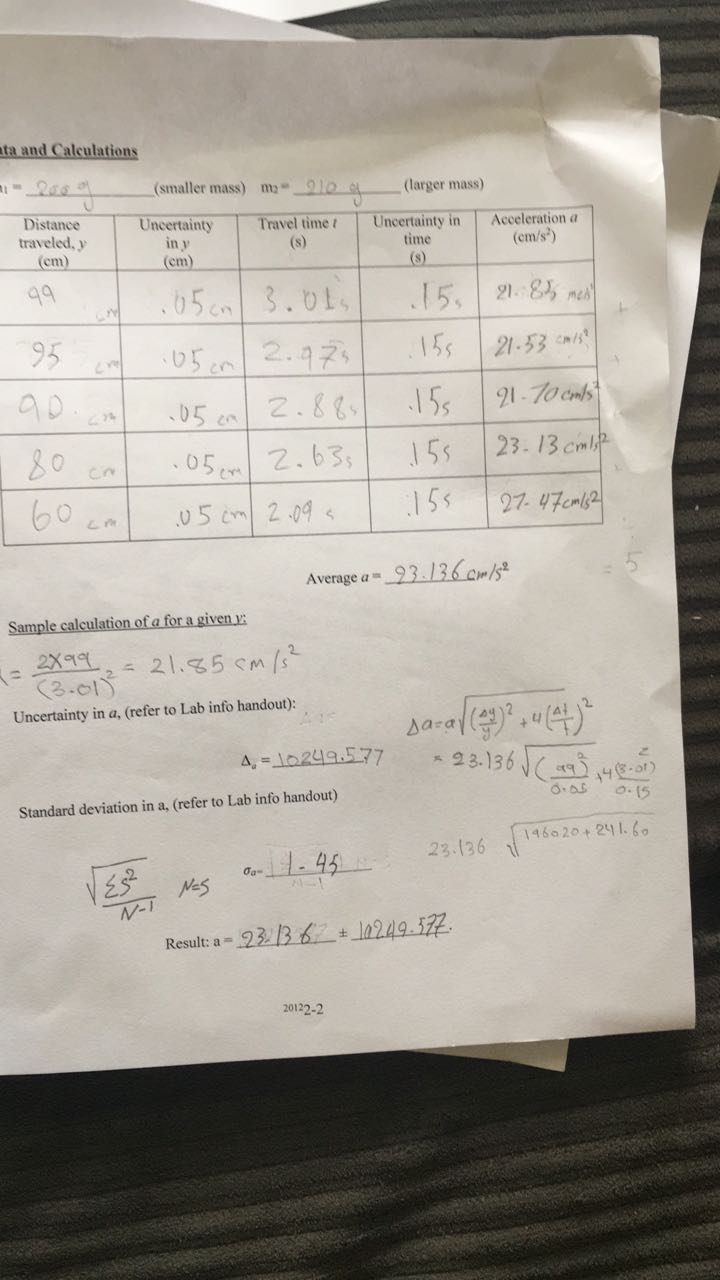 ata and Calculations
1 = 200 g (smaller mass) m₂ = 210 g (larger mass)
Distance traveled, y (cm) Uncertainty in y (cm) Travel time t (s) Uncertainty in time (s) Acceleration a (cm/s²)
99 cm .05 cm 3.01s .15s 21.85
95 cm .05 cm 2.97s .15s 21.53 cm/s²
90. cm .05 cm 2.88s .15s 21.70 cm/s²
80 cm .05 cm 2.63s .15s 23.13 cm/s²
60 cm .05 cm 2.09 s .15s 27.47 cm/s²
Average a = 23.136 cm/s² = 5
Sample calculation of a for a given y:
= 2×99/(3.01)² = 21.85 cm/s²
Uncertainty in a, (refer to Lab info handout): Δa=a√(Δy/y)²+4(Δt/t)²
Δa = 10249.577 = 23.136 √(99/0.05)²+4(3.01)²/0.15
Standard deviation in a, (refer to Lab info handout)
23.136 √196020+241.60
√ΣS²/N-1 N=5 σa= 1.45
Result: a = 23.136 ± 10249.577.
20122-2